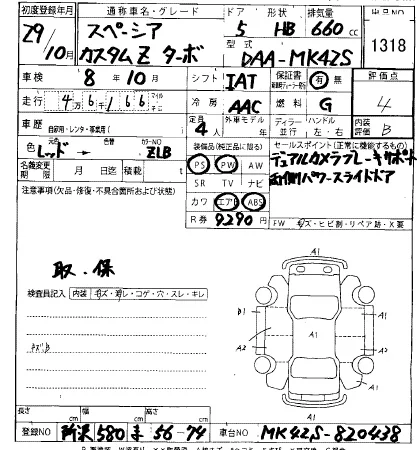 初度登録年月 通称車名・グレード ドア 形状 排気量 出品NO
29/10月 スペーシア カスタムZ ターボ 5 HB 660 cc 1318
型式 DAA-MK42S
車検 8年10月 シフト IAT 保証書 有 無 評価点
走行 4万6千166 マイル キロ 冷房 AAC 燃料 G 4
車歴 自家用・レンタ・事業用( ) 定員 4人 外車モデル ディーラー 並行 ハンドル 左・右 内評価 B
色 元色 レッド → 色替 カラーNO ZLB 装備品(純正品に限る) セールスポイント(正常に機能するもの)
名義変更期限 月 日迄 積載 t PS PW AW デュアルカメラブレーキサポート
注意事項(欠品・修復・不具合箇所および状態) SR TV ナビ 両側パワースライドドア
カワ エアB ABS
R券 9290円 FW キズ・ヒビ割・リペア跡・X要
取・保
検査員記入 内装 キズ・汚レ・コゲ・穴・スレ・キレ
キズB
A1
B1 A1
A2 A1 A2
A1
A1
長さ cm 幅 cm 高さ cm
登録NO 所沢 580 ま 56-74 車台NO MK42S-820438